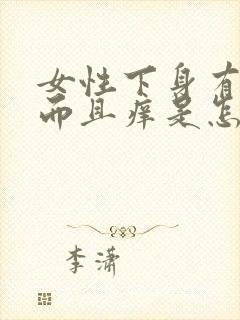 女性下身有
而且痒是怎
李潇